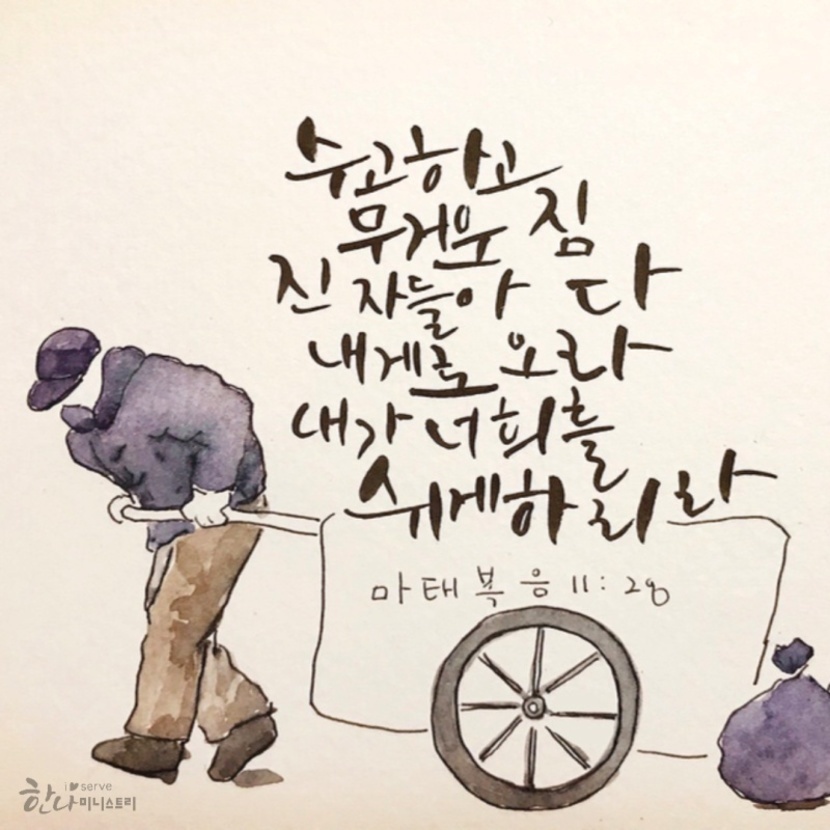 수고하고
무거운 짐
진 자들아 다
내게로 오라
내가 너희를
쉬게하리라
마태복음 11:28
i serve
한나미니스트리